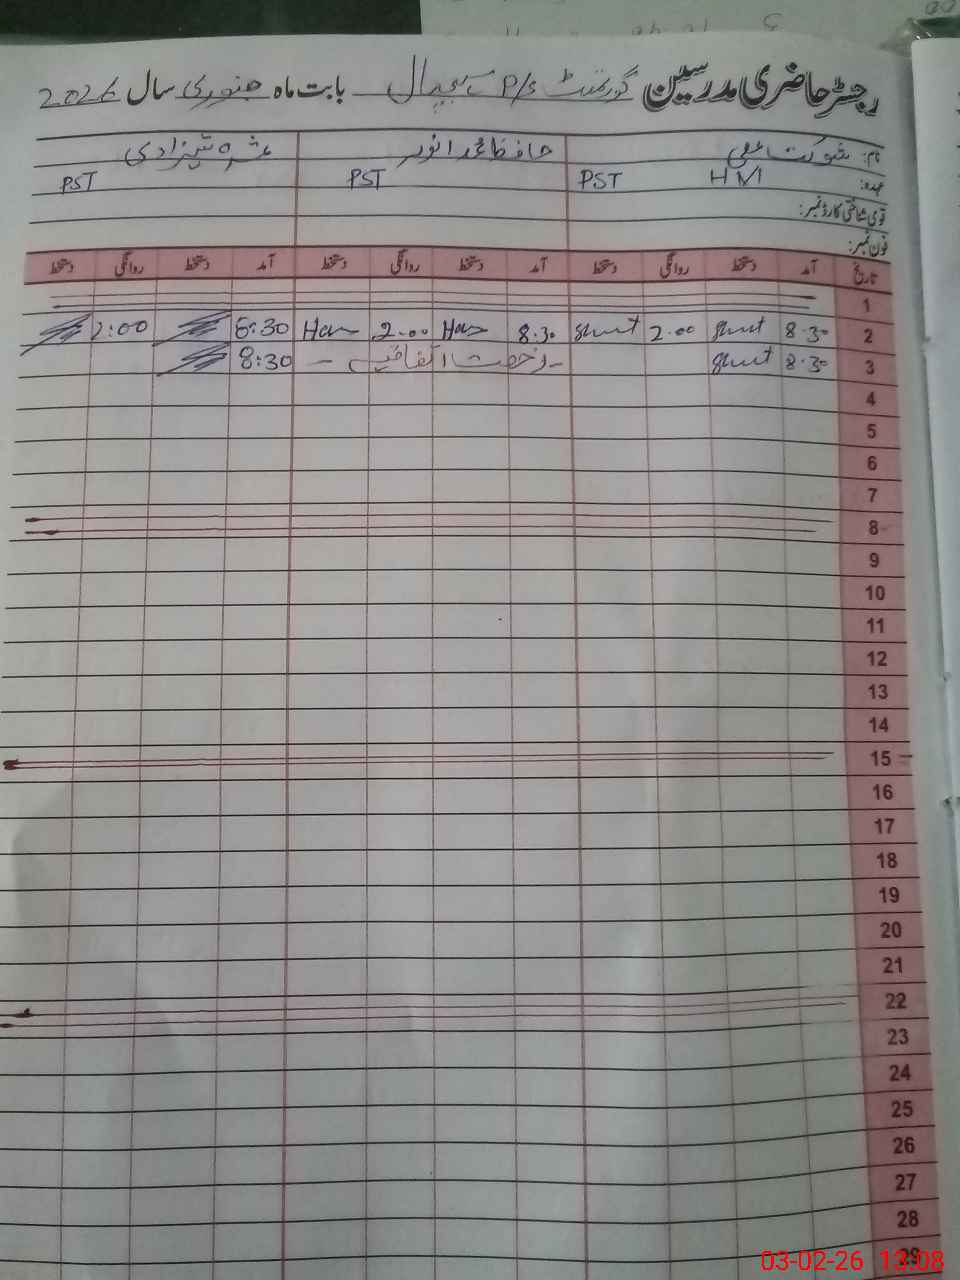 رجسٹر حاضری مدرسین گورنمنٹ P/S بابت ماہ جنوری سال 2026
نام: شوکت علی حافظ محمد انور
عہدہ: HM PST PST PST
قومی شناختی کارڈ نمبر:
فون نمبر:
تاریخ آمد دستخط روانگی دستخط آمد دستخط روانگی دستخط آمد دستخط روانگی دستخط
1
2 8.30 2.00 8.30 Han 2.00 Han 8:30 2:00
3 8.30 رخصت اتفاقیہ 8:30
4
5
6
7
8
9
10
11
12
13
14
15
16
17
18
19
20
21
22
23
24
25
26
27
28
29
03-02-26 13:08